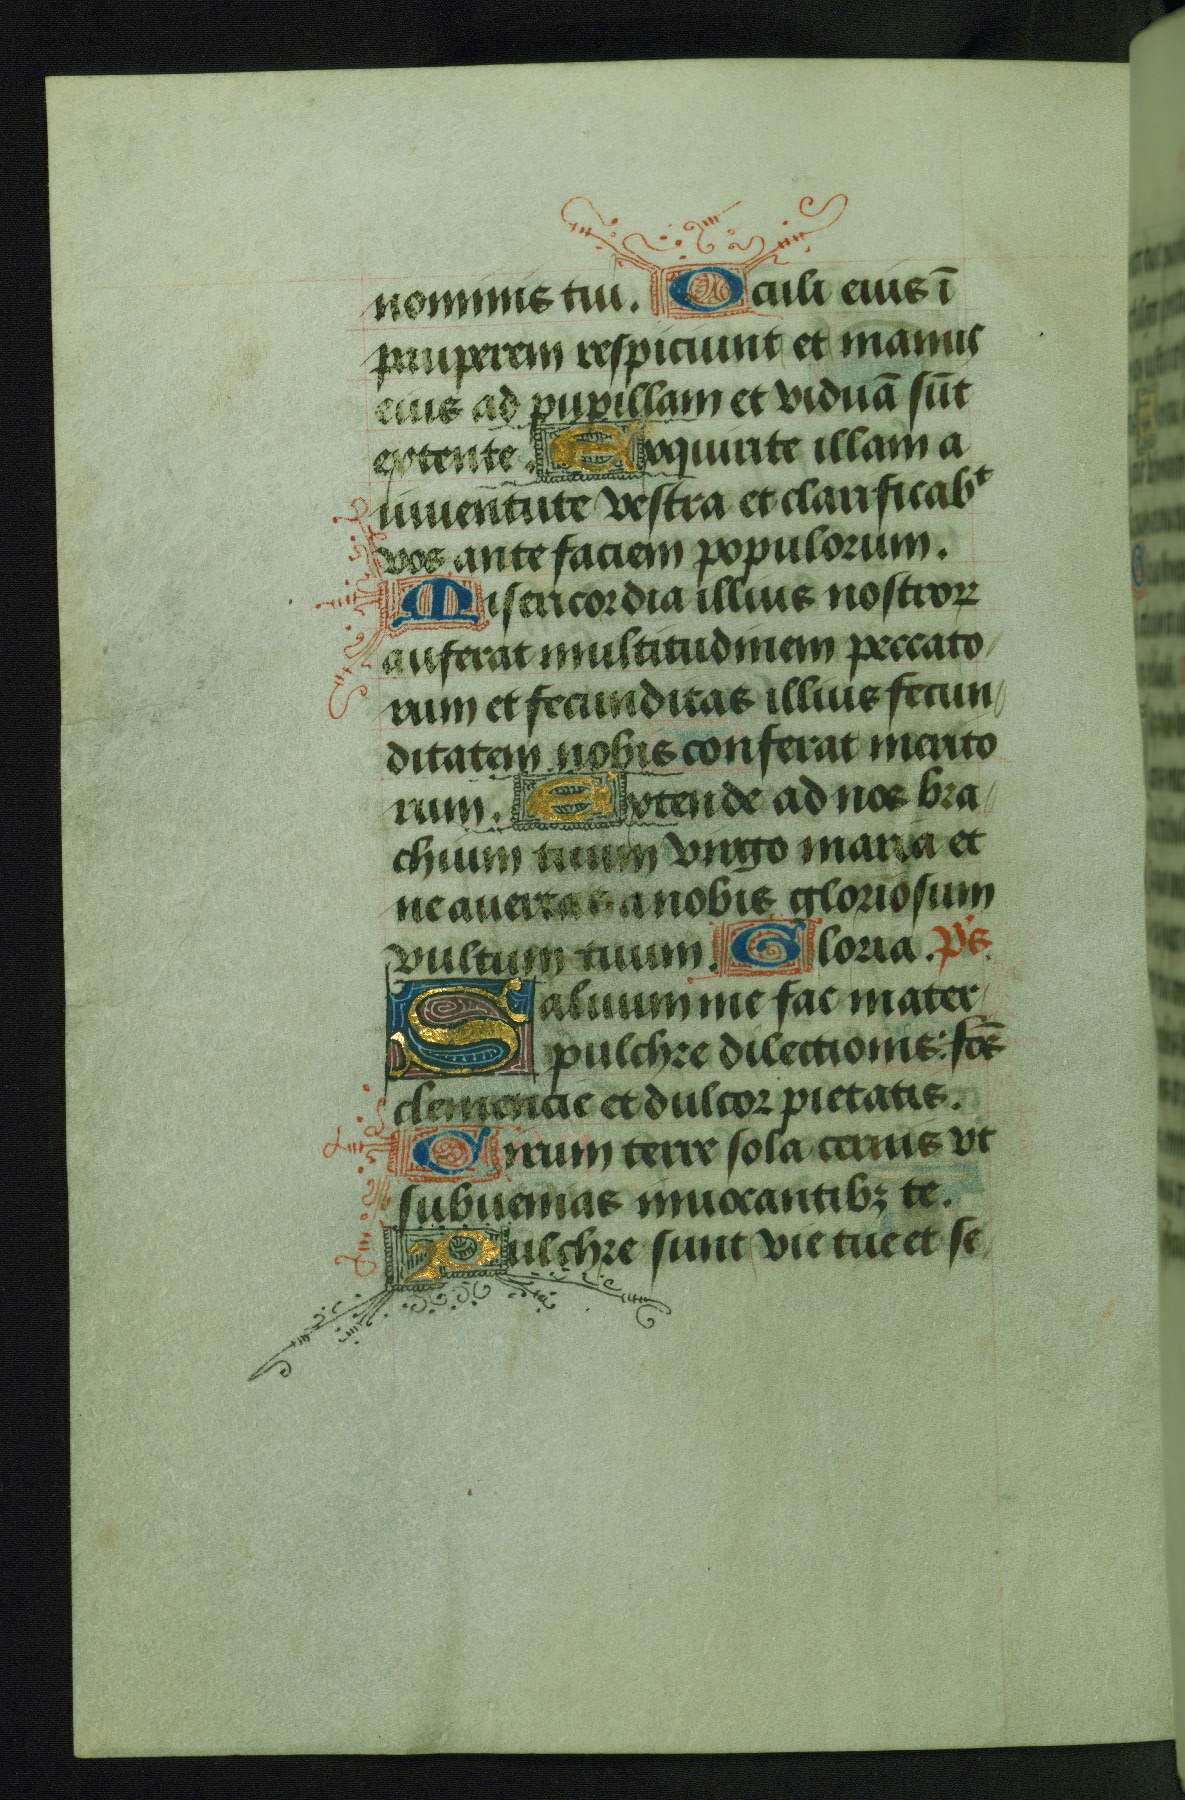 nominis tui. Oculi eius ī
pauperem respiciunt et manus
eius ad pupillam et viduā sūt
extente. Exquirite illam a
iuuentute vestra et clarificabᵗ
vos ante faciem populorum.
Misericordia illius nostroꝝ
auferat multitudinem peccato/
rum et fecunditas illius fecun/
ditatem nobis conferat merito
rum. Extende ad nos bra/
chium tuum virgo maria et
ne auertas a nobis gloriosum
vultum tuum. Gloria. p̄s.
Saluum me fac mater/
pulchre dilectionis: fōs
clemencie et dulcor pietatis.
Girum terre sola cernis vt
subuenias inuocantibꝫ te.
Pulchre sunt vie tue et se/